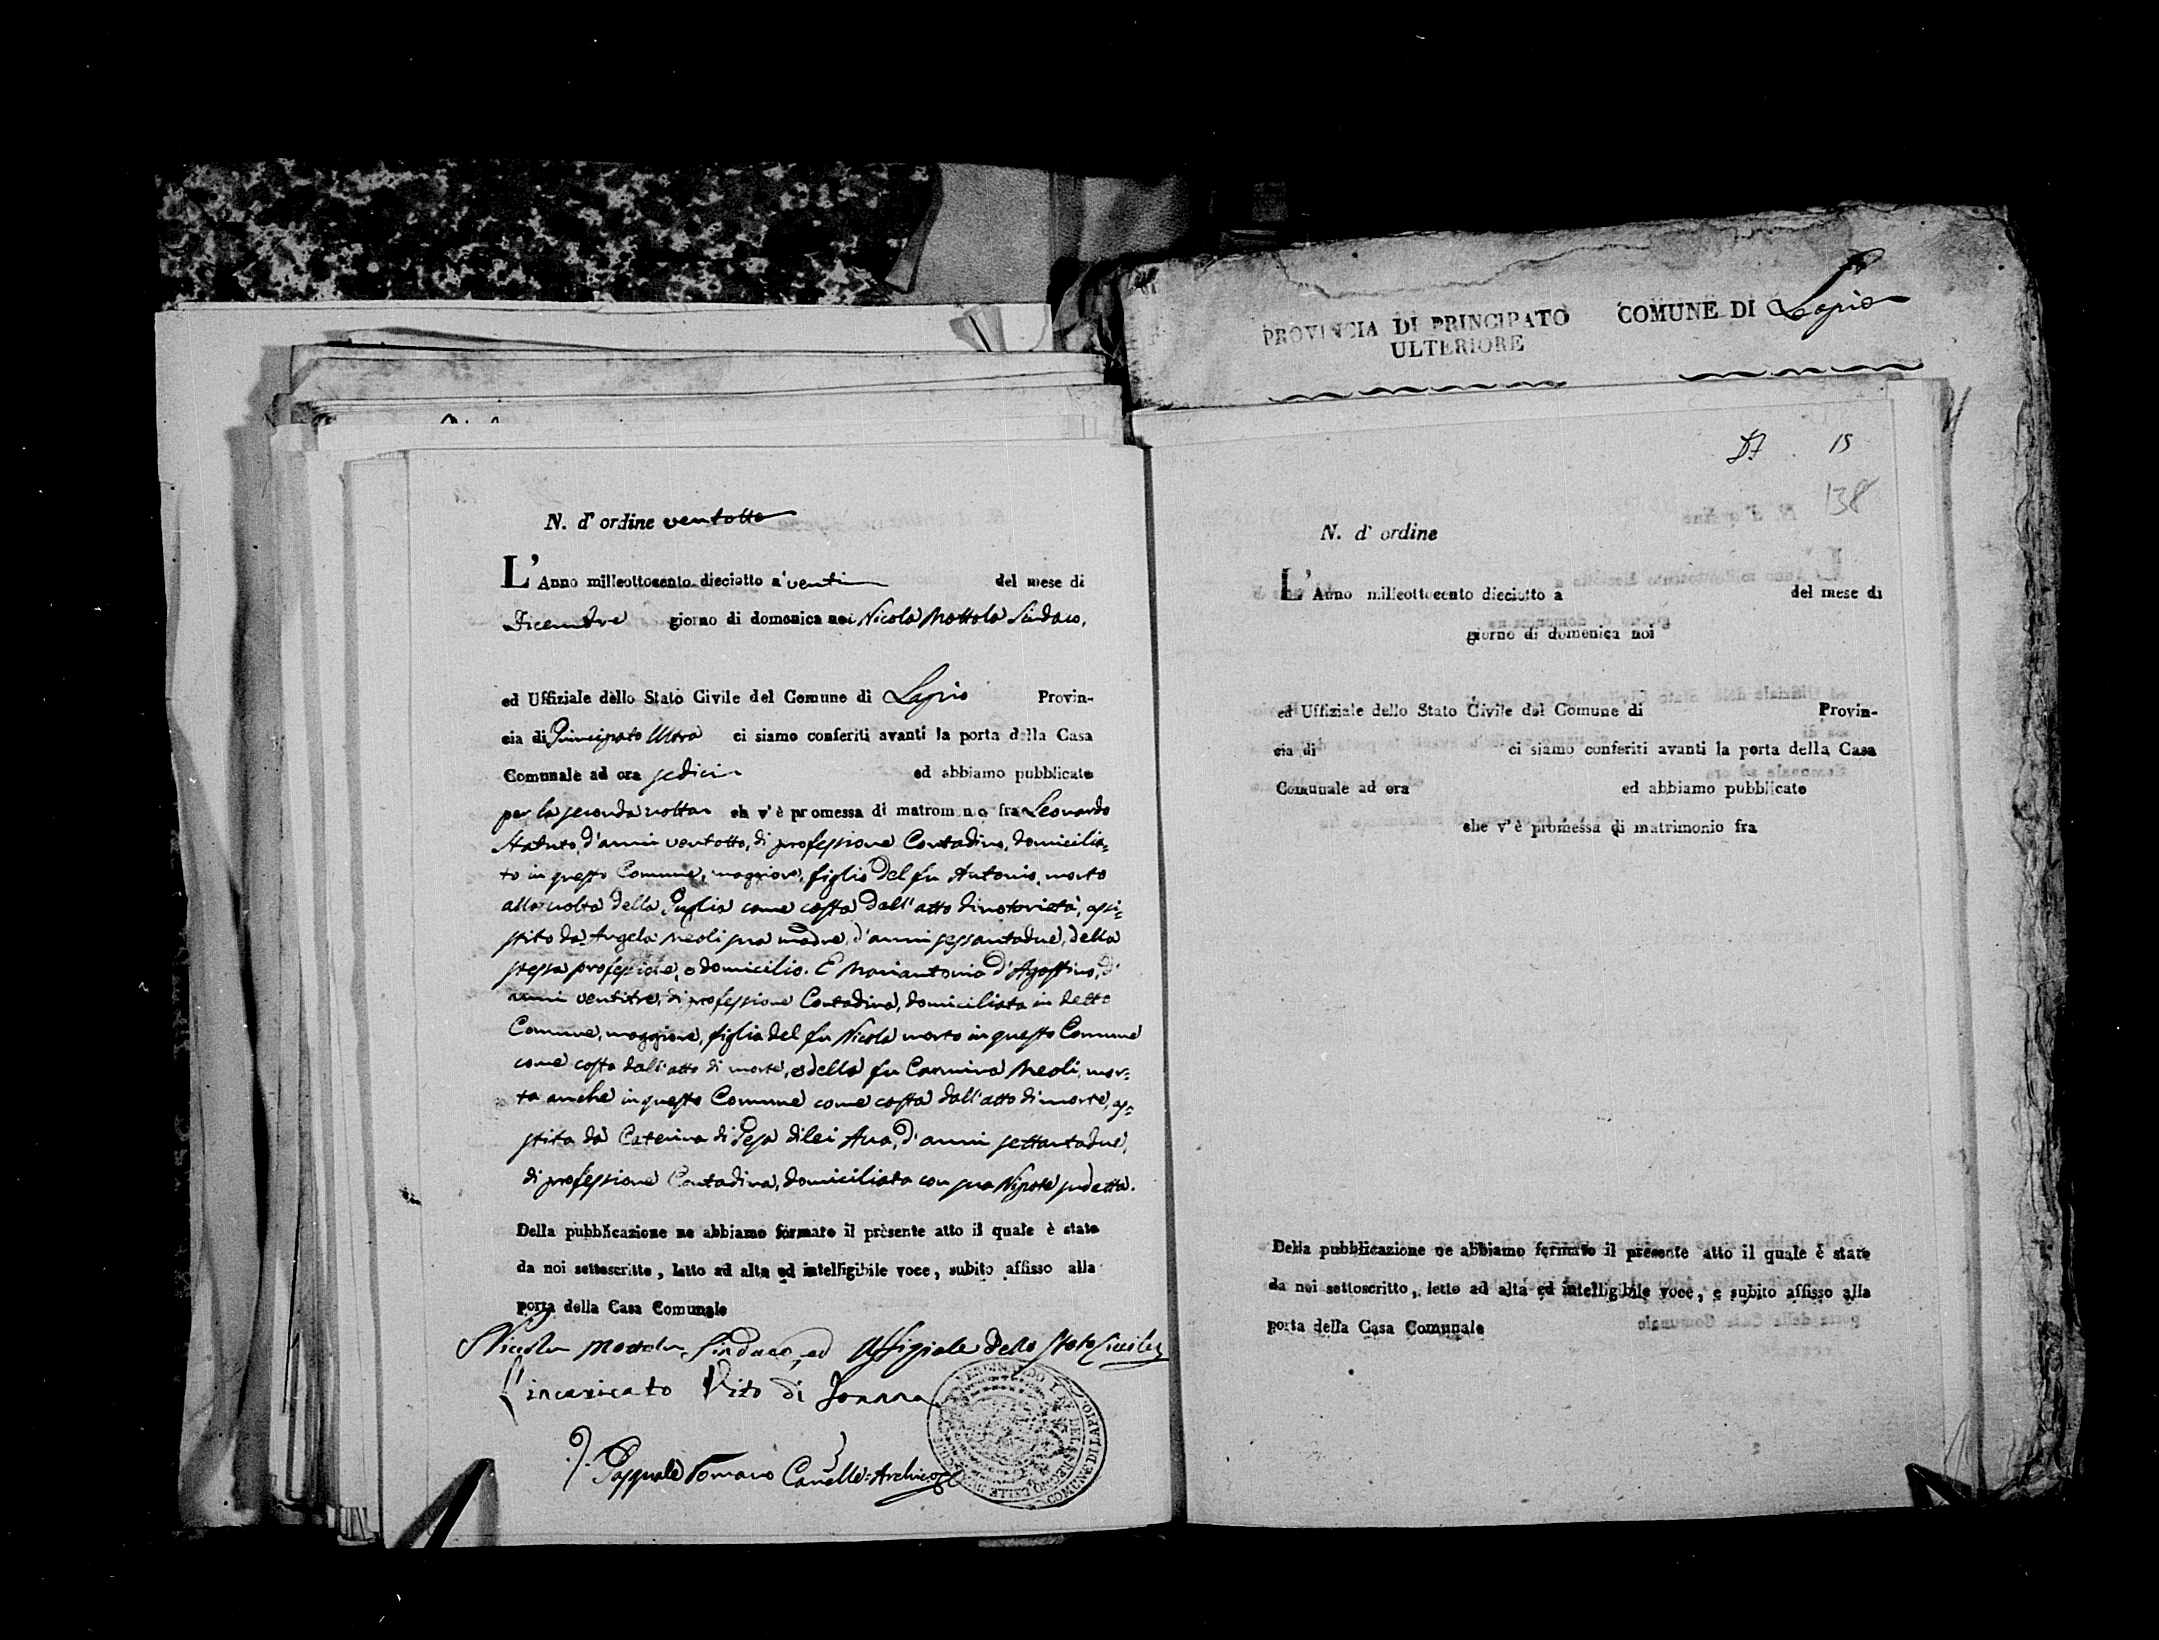 N. d' ordine ventotto
L' Anno milleottocento dieciotto a' venti del mese di
Dicembre giorno di domenica noi Nicola Mottola Sindaco,
ed Uffiziale dello Stato Civile del Comune di Lapio Provin-
cia di Principato Ultra ci siamo conferiti avanti la porta della Casa
Comunale ad ora sedici ed abbiamo pubblicato
per la seconda volta ch v'è promessa di matrom n o fra Leonardo
Statuto, d'anni ventotto, di professione Contadino, domicilia=
to in questo Comune, maggiore, figlio del fu Antonio, morto
alla volta della Puglia come costa dall'atto di notorietà, assi=
stito da Angela Meoli sua madre, d'anni sessantadue, della
stessa professione, e domicilio. E Mariantonia d'Agostino, d'
anni ventitre, di professione Contadina, domiciliata in detto
Comune, maggiore, figlia del fu Nicola morto in questo Comune
come costa dall'atto di morte, e della fu Carmina Meoli, mor=
ta anche in questo Comune come costa dall'atto di morte, as=
stita da Caterina di Pesa di lei Ava, d'anni settantadue,
di professione Contadina, domiciliata con sua Nipote sudetta.
Della pubblicazione ne abbiamo formato il presente atto il quale è stato
da noi sottoscritto, letto ad alta ed intelligibile voce, subito affisso alla
porta della Casa Comunale
Nicola Mottola Sindaco, ed Uffiziale dello Stato Civile
L'incaricato Vito di Joanna
Pasquale Romano Archivario
COMUNE DI LAPIO
PROVINCIA DI PRINCIPATO
ULTERIORE
COMUNE DI Lapio
15
138
N. d' ordine
L' Anno milleottocento dieciotto a del mese di
giorno di domenica noi
ed Uffiziale dello Stato Civile del Comune di Provin-
cia di ci siamo conferiti avanti la porta della Casa
Comunale ad ora ed abbiamo pubblicato
che v'è promessa di matrimonio fra
Della pubblicazione ne abbiamo formato il presente atto il quale è stato
da noi sottoscritto, letto ad alta ed intelligibile voce, e subito affisso alla
porta della Casa Comunale